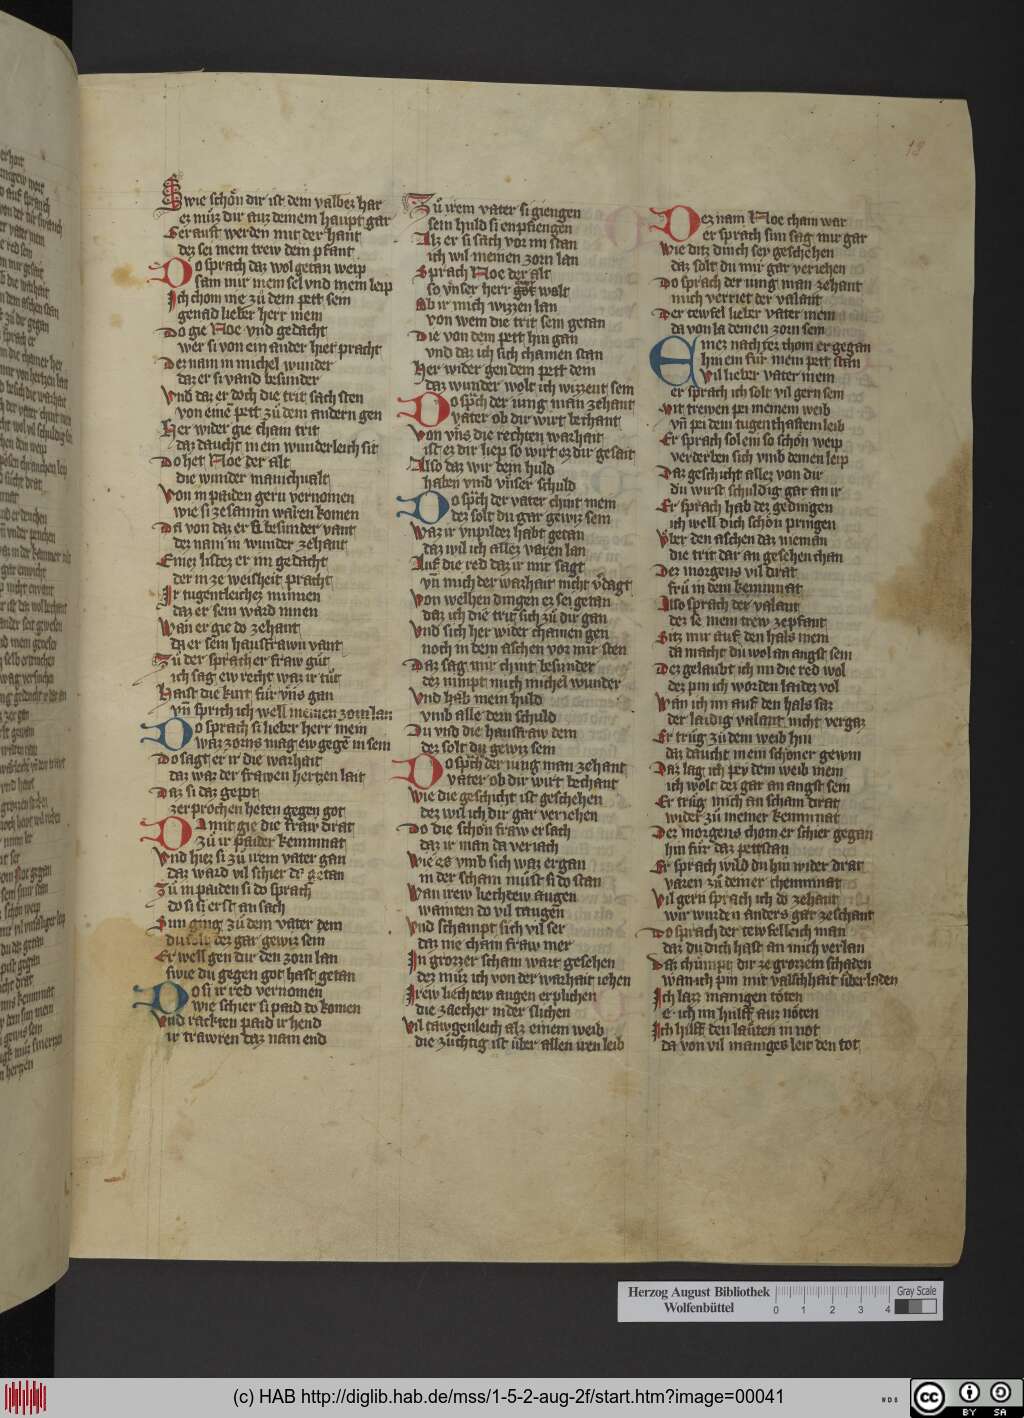 18
Swie schön dir ist dem valbez har
ez müz dir auz deinem haupt gar
Geraust werden mit der hant
dez sei mein trew dein pfant
Do sprach daz wol getan weip
sam mir mein sel vnd mein leip
Ich chom nie zů dem pett sein
genad lieber herr mein
Do gie Noe vnd gedacht
wer si von ein ander hiet pracht
Der nam in michel wunder
daz er si vand besunder
Vnd daz er doch die trit sach sten
von einē pett zů dem andern gen
Her wider gie cham trit
daz daucht in ein wunderleich sit
Do het Noe der alt
die wunder manichualt
Von in paiden gern vernomen
wie si zesamm waren komen
Da von daz er si besunder vant
der nam in wunder zehant
Einez listez er im gedacht
der in ze weisheit pracht
Ir tugentleichez minnen
daz er sein ward innen
Wan er gie do zehant
da er sein hausfrawn vant
Zů der sprach er fraw gůt
ich sag ew recht waz ir tůt
Haist die kint für vns gan
vn sprich ich well meinen zorn lan
Do sprach si lieber herr mein
waz zorns mag ew gegē in sein
Do sagt er ir die warhait
daz waz der frawen hertzen lait
Daz si daz gepot
zerprochen heten gegen got
Damit gie die fraw drat
zů ir paider kemmnat
Vnd hiez si zů irem vater gan
daz ward vil schier do getan
Zů in paiden si do sprach
do si si erst an sach
Sun ging zů dem vater dein
du solt dez gar gewiz sein
Er well gen dir den zorn lan
swie du gegen got hast getan
Do si ir red vernomen
wie schier si paid do komen
Vnd rackten paid ir hend
ir trawren daz nam end
Zů irem vater si giengen
sein huld si enpfiengen
Alz er si sach vor im stan
ich wil meinen zorn lan
Sprach Noe der alt
so vnser herr got walt
Ab ir mich wizzen lan
von wem die trit sein getan
Die von dem pett hin gan
vnd daz ich sich chamen stan
Her wider gen dem pett dein
daz wunder wolt ich wizzent sein
Do sprch der iung man zehant
vater ob dir wirt bechant
Von vns die rechten warhait
ist ez dir liep so wirt ez dir gesait
Also daz wir dein huld
haben vmb vnser schuld
Do sprch der vater chint mein
dez solt du gar gewiz sein
Waz ir vnpildez habt getan
daz wil ich allez varen lan
Auf die red daz ir mir sagt
vn mich der warhait nicht v̄dagt
Von welhen dingen ez sei getan
daz ich die trit sich zů dir gan
Vnd sich her wider chamen gen
noch in dem aschen vor mir sten
Daz sag mir chint besunder
dez nimpt mich michel wunder
Vnd hab mein huld
vmb alle dein schuld
Du vnd die hausfraw dein
dez solt du gewiz sein
Do sprch der iung man zehant
vater ob dir wirt bechant
Wie die geschicht ist geschehen
dez wil ich dir gar veriehen
Do die schön fraw ersach
daz ir man da veriach
Wie ez vmb sich waz ergan
in der scham müst si do stan
Wan irew liechtew augen
wainten do vil taugen
Vnd schampt sich vil ser
daz nie cham fraw mer
In grozzer scham wart gesehen
dez müz ich von der warhait iehen
Irew liechtew augen erplichen
die zaecher nider slichen
Vil tawgenleich alz einem weib
die züchtig ist über allen iren leib
Dez nam Noe cham war
er sprach sun sag mir gar
Wie ditz dinch sey geschehen
daz solt du mir gar veriehen
Do sprach der iung man zehant
mich verriet der valant
Der tewfel lieber vater mein
da von la deinen zorn sein
Einez nachtez chom er gegan
hin ein für mein pett stan
Vil lieber vater mein
er sprach ich solt vil gern sein
Mit trewen pei meinem weib
vn pei dem tugenthaftem leib
Er sprach sol ein so schön weip
verderben sich vmb deinen leip
Daz geschicht allez von dir
du wirst schuldig gar an ir
Er sprach hab dez gedingen
ich well dich schön pringen
Vber den aschen daz nieman
die trit dar an gesehen chan
Dez morgens vil drat
frů in dem kemmnat
Also sprach der valant
dez se mein trew zepfant
Sitz mir auf den hals mein
da macht du wol an angst sein
Dez gelaubt ich im die red wol
dez pin ich worden laidez vol
Wan ich im auf den hals saz
der laidig valant nicht vergaz
Er trůg zů dem weib hin
daz daucht mein schöner gewin
Daz lag ich pey dem weib mein
ich wolt dez gar an angst sein
Er trůg mich an scham drat
wider zů meiner kemmnat
Dez morgens chom er schier gegan
hin für daz pettstan
Er sprach wild du hin wider drat
varen zů deiner chemminat
Vil gern sprach ich do zehant
wir wurden anders gar zeschant
Do sprach der tewfelleich man
daz du dich hast an mich verlan
Daz chümpt dir ze grozzem schaden
wan ich pin mit valschhait überladen
Ich laz manigen töten
e ich im hilff auz nöten
Ich hilff den laüten in not
da von vil maniges leit den tot
Herzog August Bibliothek
Wolfenbüttel
0 1 2 3 4
Gray Scale
(c) HAB http://diglib.hab.de/mss/1-5-2-aug-2f/start.htm?image=00041
WDB
cc BY SA